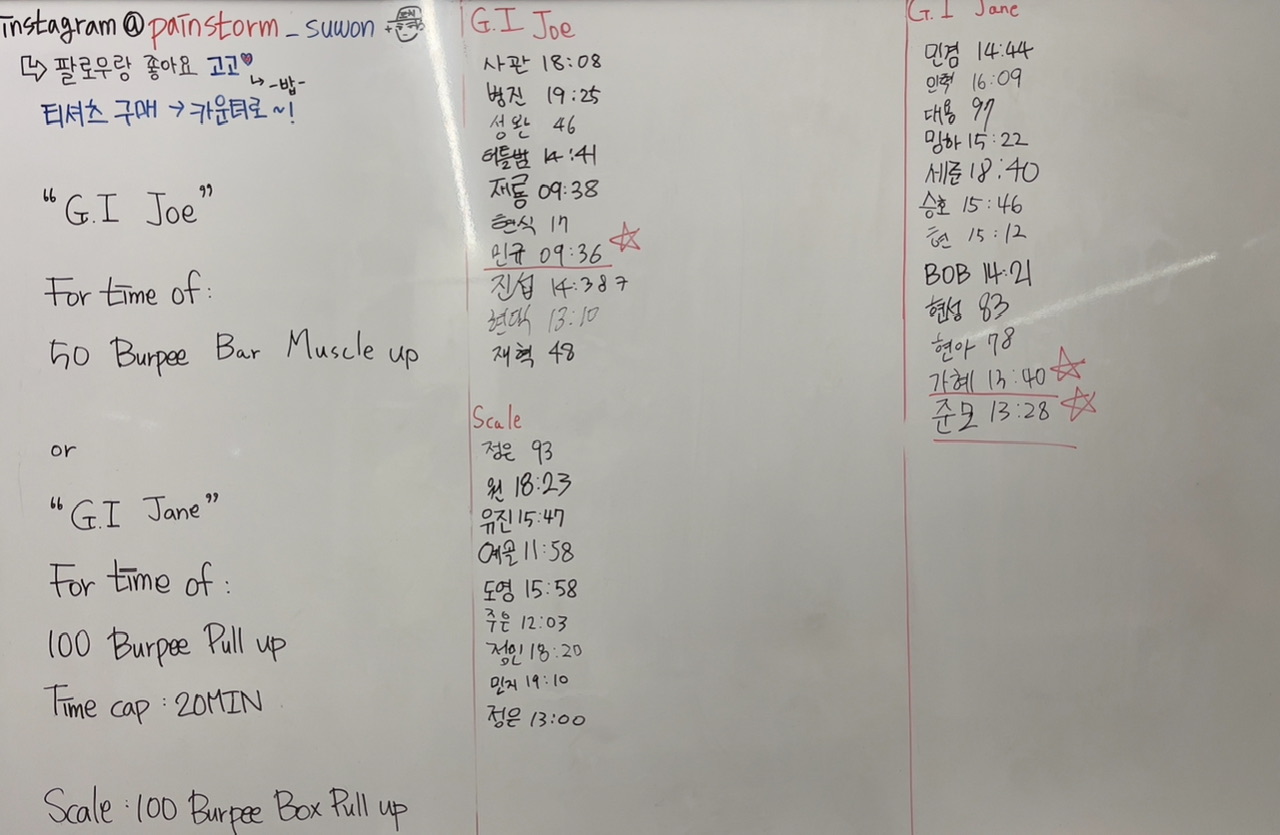 instagram@painstorm_suwon
↳ 팔로우랑 좋아요 고고♥
↳ -밥-
티셔츠 구매 → 카운터로~!
"G.I Joe"
For time of:
50 Burpee Bar Muscle up
or
"G.I Jane"
For time of:
100 Burpee Pull up
Time cap : 20MIN
Scale : 100 Burpee Box Pull up
G.I Joe
사관 18:08
병진 19:25
성완 46
터틀밤 14:41
재룡 09:38
현식 17
민규 09:36 ☆
진섭 14:387
13:10
재혁 48
Scale
정은 93
원 18:23
유진 15:47
예골 11:58
도영 15:58
주은 12:03
정인 18:20
민지 19:10
정은 13:00
G.I Jane
민겸 14:44
인혁 16:09
대용 97
밍하 15:22
세준 18:40
승호 15:46
현 15:12
BOB 14:21
현성 83
현아 78
가혜 13:40 ☆
준모 13:28 ☆